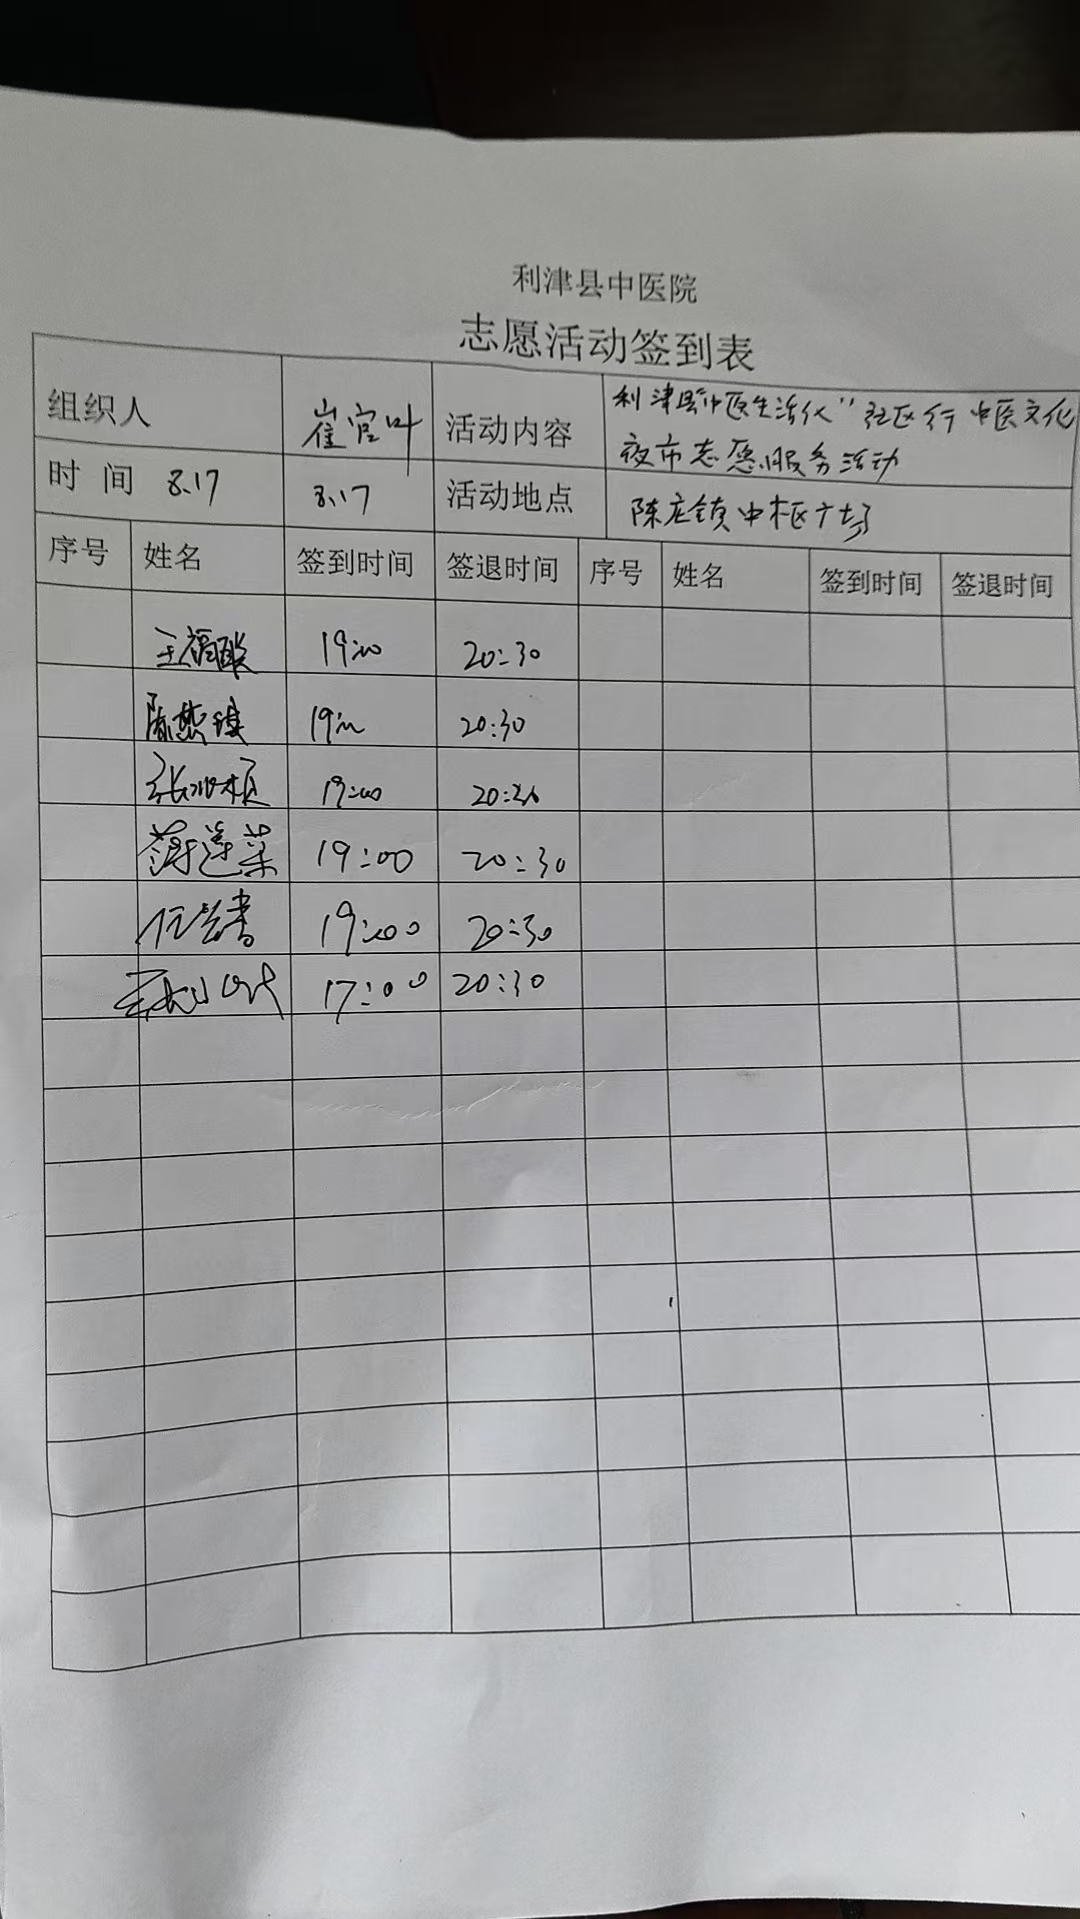 利津县中医院
志愿活动签到表
组织人 崔官叶 活动内容 利津县"中医生活化"社区行 中医文化
夜市志愿服务活动
时 间 8.17 8.17 活动地点 陈庄镇中枢广场
序号 姓名 签到时间 签退时间 序号 姓名 签到时间 签退时间
19:00 20:30
19:00 20:30
19:00 20:30
薄莲菜 19:00 20:30
19:00 20:30
17:00 20:30